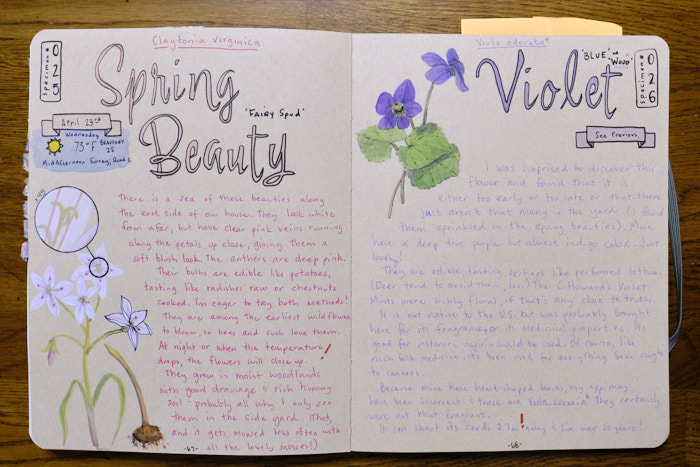 Claytonia virginica
specimen
025
Spring
'Fairy Spud'
Beauty
April 23rd
Wednesday
73°F
Mid Afternoon
There is a sea of these beauties along
the east side of our house. They look white
from afar, but have clear pink veins running
along the petals up close, giving them a
soft blush look. The anthers are deep pink.
Their bulbs are edible like potatoes,
tasting like radishes raw or chestnuts
cooked. I'm eager to try both methods!
They are among the earliest wildflowers
to bloom, so bees and such love them.
At night or when the temperature
drops, the flowers will close up.
They grow in moist woodlands
with good drainage & rich humus
soil - probably all why I only see
them in the side yard. (That,
and it gets mowed less often with
all the lovely mosses!)
-67-
Viola odorata*
Violet
'Blue' or 'Wood'
specimen
026
See Previous
I was surprised to discover this
flower and found that it is
either too early or too late or that there
just aren't that many in the yard. (I found
them sprinkled in the spring beauties). Mine
have a deep true purple but almost indigo color. Just
lovely!
They are edible, tasting perhaps like perfumed lettuce.
(Deer tend to avoid them, too.) The C. Howard's Violet
Mints were richly floral, if that's any close to truth.
It is not native to the U.S. but was probably brought
here for its fragrance, or its medicinal properties. It's
good for insomnia, aspirin could be used. Of course, like
much folk medicine, it's been used for everything from coughs
to cancers.
Because mine have heart-shaped leaves, my app may
have been incorrect & these are * They certainly
were not that fragrant.
It can shoot its seeds 2.7m away & live over 10 years!
-68-